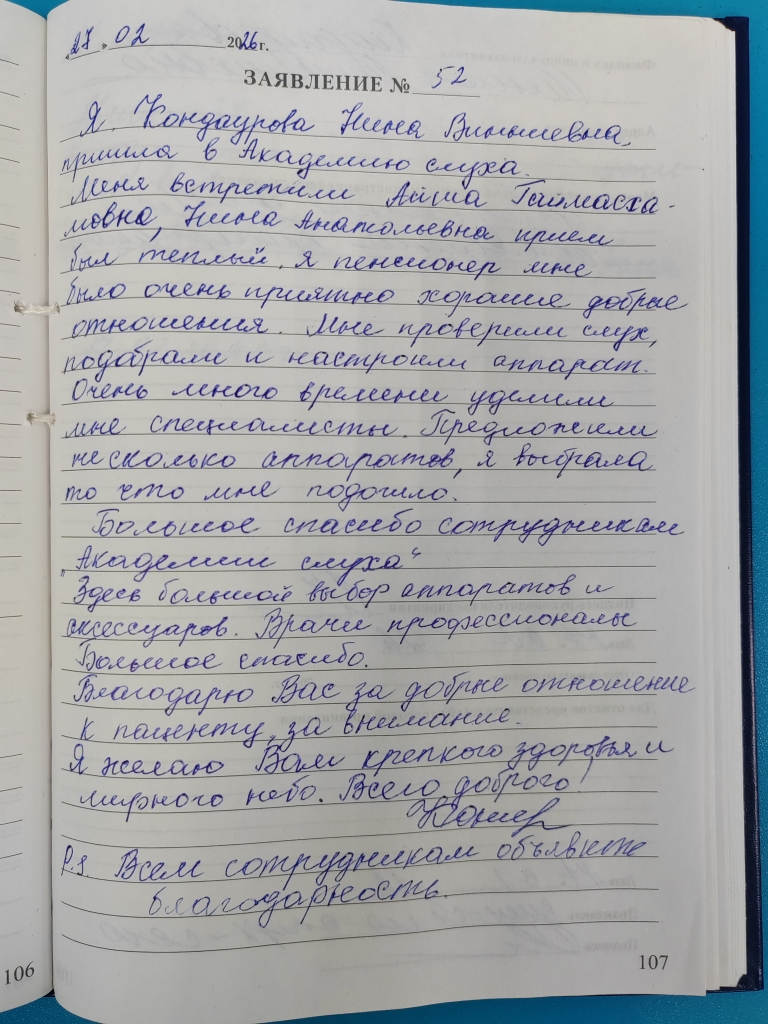 «27» 02 2026 г.
ЗАЯВЛЕНИЕ № 52
Я Кондаурова Нина
пришла в Академию слуха.
Меня встретили Айша Гаймасха-
мовна, Нина Анатольевна прием
был теплый. я пенсионер мне
было очень приятно хорошие добрые
отношения. Мне проверили слух,
подобрали и настроили аппарат.
Очень много времени уделили
мне специалисты. Предложили
несколько аппаратов, я выбрала
то что мне подошло.
Большое спасибо сотрудникам
„Академии слуха“
Здесь большой выбор аппаратов и
аксессуаров. Врачи профессионалы
Большое спасибо.
Благодарю Вас за добрые отношение
к пациенту, за внимание.
Я желаю Вам крепкого здоровья и
мирного небо. Всего доброго!
P.S. Всем сотрудникам объявите
благодарность.
106
107